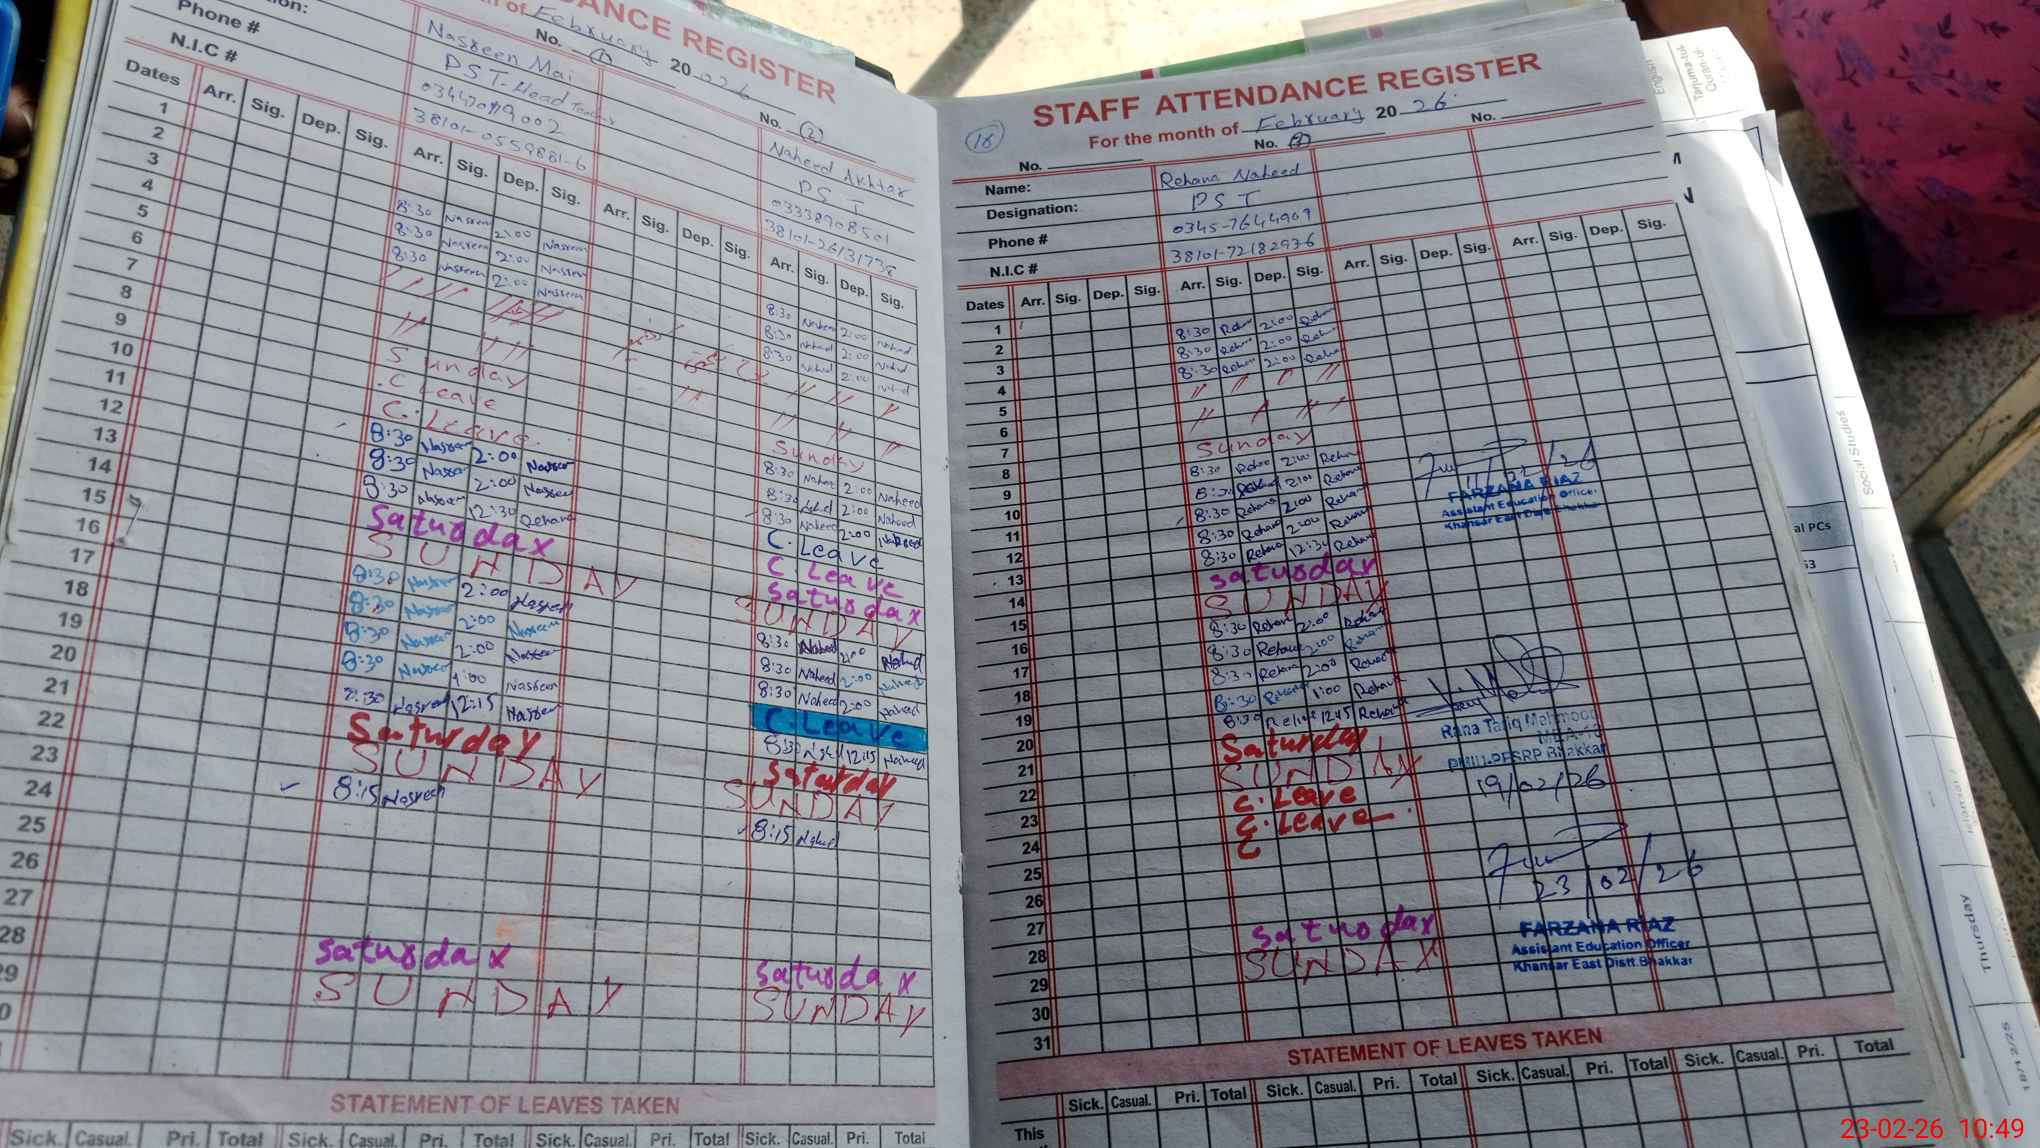 DANCE REGISTER
of February 2026
No. (1)
No. (2)
Phone #
N.I.C #
Nasreen Mai
PST-Head Teacher
38101-0559881-6
Naheed Akhtar
PST
03338908501
Dates Arr. Sig. Dep. Sig. Arr. Sig. Dep. Sig. Arr. Sig. Dep. Sig. Arr. Sig. Dep. Sig.
1
2
3
4
5
6
7
8
9
10
11
12
13
14
15
16
17
18
19
20
21
22
23
24
25
26
27
28
8:30 Nasreen 2:00 Nasreen
8:30 Nasreen 2:00 Nasreen
8:30 Nasreen 2:00 Nasreen
Sunday
C Leave
C. Leave
8:30 Nasreen 2:00 Nasreen
8:30 Nasreen 2:00 Nasreen
8:30 Nasreen 12:30 Rehana
Saturday
SUNDAY
8:30 Nasreen 2:00 Nasreen
8:30 Nasreen 2:00 Nasreen
8:30 Nasreen 2:00 Nasreen
8:30 Nasreen 1:00 Nasreen
8:30 Nasreen 12:15 Nasreen
Saturday
SUNDAY
8:15 Nasreen
Saturday
SUNDAY
8:30 Naheed 2:00 Naheed
8:30 Naheed 2:00 Naheed
8:30 Naheed 2:00 Naheed
Sunday
8:30 Naheed 2:00 Naheed
8:30 Naheed 2:00 Naheed
8:30 Naheed 2:00 Naheed
C. Leave
C. Leave
Saturday
SUNDAY
8:30 Naheed 2:00 Naheed
8:30 Naheed 2:00 Naheed
8:30 Naheed 2:00 Naheed
C. Leave
8:30 Naheed 12:15 Naheed
Saturday
SUNDAY
8:15 Naheed
Saturday
SUNDAY
STATEMENT OF LEAVES TAKEN
Sick. Casual. Pri. Total Sick. Casual. Pri. Total Sick. Casual. Pri. Total Sick. Casual. Pri. Total
STAFF ATTENDANCE REGISTER
(18)
For the month of February 2026
No. No. (3) No.
Name: Rehana Naheed
Designation: PST
Phone # 0345-7644909
N.I.C # 38101-7218297-6
Dates Arr. Sig. Dep. Sig. Arr. Sig. Dep. Sig. Arr. Sig. Dep. Sig. Arr. Sig. Dep. Sig.
1
2
3
4
5
6
7
8
9
10
11
12
13
14
15
16
17
18
19
20
21
22
23
24
25
26
27
28
29
30
31
8:30 Rehana 2:00 Rehana
8:30 Rehana 2:00 Rehana
8:30 Rehana 2:00 Rehana
Sunday
8:30 Rehana 2:00 Rehana
8:30 Rehana 2:00 Rehana
8:30 Rehana 2:00 Rehana
8:30 Rehana 2:00 Rehana
8:30 Rehana 12:30 Rehana
Saturday
SUNDAY
8:30 Rehana 2:00 Rehana
8:30 Rehana 2:00 Rehana
8:30 Rehana 2:00 Rehana
8:30 Rehana 1:00 Rehana
8:30 Rehana 12:15 Rehana
Saturday
SUNDAY
C. Leave
C. Leave
C
Saturday
SUNDAY
FARZANA RIAZ
Assistant Education Officer
Khansar East Distt. Bhakkar
Rana Tariq Mehmood
PMIU-PESRP Bhakkar
19/02/26
23/02/26
FARZANA RIAZ
Assistant Education Officer
Khansar East Distt. Bhakkar
STATEMENT OF LEAVES TAKEN
Sick. Casual. Pri. Total Sick. Casual. Pri. Total Sick. Casual. Pri. Total Sick. Casual. Pri. Total
This
English
Social Studies
al PCs
Thursday
23-02-26 10:49